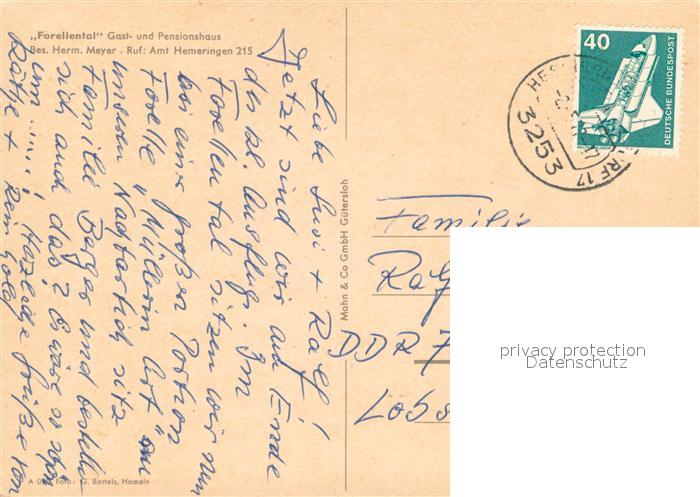 „Forellental" Gast- und Pensionshaus
Bes. Herm. Meyer · Ruf: Amt Hemeringen 215
Liebe Susi + Ralf!
Jetzt sind wir am Ende
des kl. Ausflugs. Im
Forellental sitzen wir nun
bei einer großen Portion
Forelle „Müllerin Art" am
unseren Nachtisch sitz
Familie Berger und bestellt
sich auch das? Es wäre so schön
um Herzliche Grüße von
Käthe + Reinhold
Mohn & Co GmbH Gütersloh
A Foto: G. Bartels, Hameln
40
DEUTSCHE BUNDESPOST
3253
17
Familie
Ralf
DDR 7
privacy protection
Datenschutz